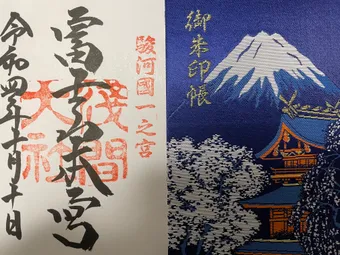 駿河國一之宮
富士本宮
淺間
大社
令和四年 月十日
御朱印帳